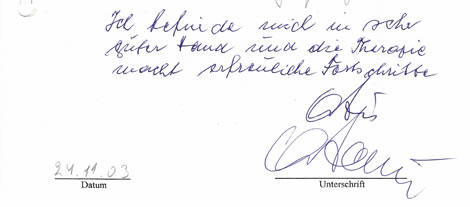 Ich befinde mich in sehr
guter Hand und die Therapie
macht erfreuliche Fortschritte
24.11.03
Datum
Unterschrift